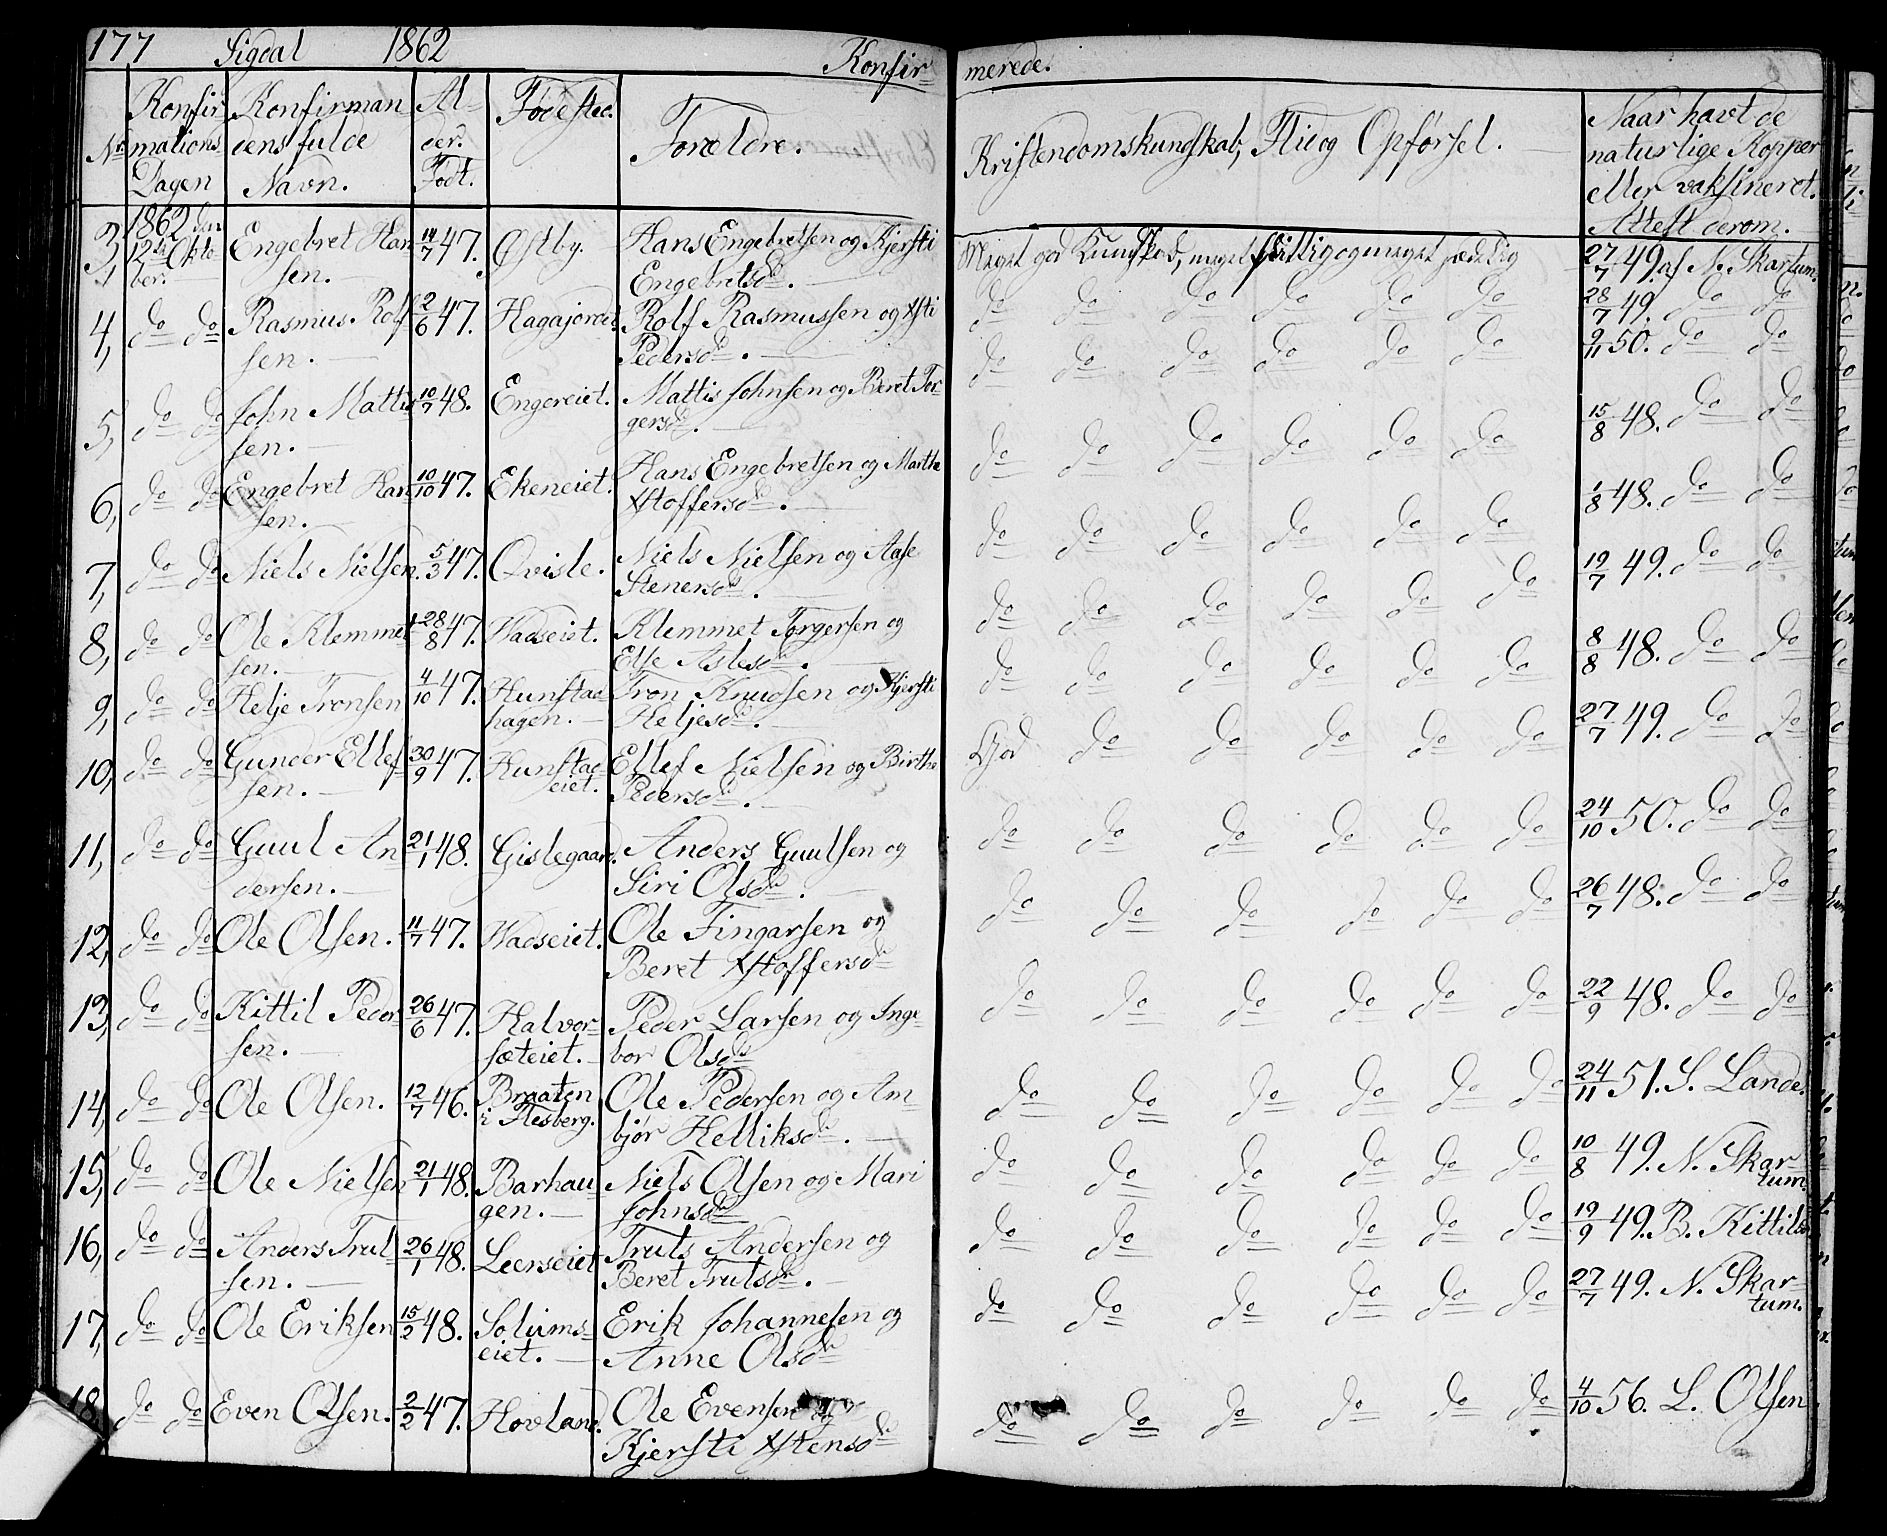 177 Sigdal 1862 Konfir-
merede.
Nr Konfir
mations
Dagen
Konfirman
dens fulde
Navn.
Al-
der.
Født.
Fødested.
Forældre.
Kristendomskundskab, Flid og Opførsel.
Naar havt de
naturlige Kopper
eller vaksineret.
Attest derom.
3, 1862 den 12te Okto Engebret Han 14/7 47. Østby. Hans Engebretsen og Kjersti Meget god Kundskab, meget flittig og meget sædelig 27/7 49. af N. Skartum.
ber. sen. Engebretsdr.
4, do do Rasmus Rolf 2/6 47. Hagajordet. Rolf Rasmussen og Xsti do do do do do do 28/7 49. do do
sen. Pedersdr.
5, do do John Mattis 10/7 48. Engereiet. Mattis Johnsen og Beret Tor- do do do do do do 9/11 50. do do
sen. gersdr.
6, do do Engebret Han 10/10 47. Ekeneiet. Hans Engebretsen og Marthe do do do do do do 15/8 48. do do
sen. Xstoffersdr.
7, do do Niels Nielsen. 5/3 47. Qvisle. Niels Nielsen og Aase do do do do do do 1/8 48. do do
Stenersdr.
8, do do Ole Klemmet 28/8 47. Hadseiet. Klemmet Torgersen og do do do do do do 19/7 49. do do
sen. Else Aslesdr.
9, do do Helje Tronsen 4/10 47. Hunstad Tron Knudsen og Kjersti do do do do do do 8/8 48. do do
hagen. Heljesdr.
10, do do Gunder Ellef 30/9 47. Hunstad- Ellef Nielsen og Birthe God do do do do do 27/7 49. do do
sen. eiet. Pedersdr.
11, do do Guul An 21/1 48. Gislegaard. Anders Guulsen og do do do do do do 24/10 50. do do
dersen. Siri Olsdr.
12, do do Ole Olsen. 11/7 47. Hadseiet. Ole Fingarsen og do do do do do do 26/7 48. do do
Beret Xstoffersdr
13, do do Kittil Peder 26/6 47. Halvor- Peder Larsen og Inge- do do do do do do 22/9 48. do do
sen. sæteiet. bor Olsdr
14, do do Ole Olsen. 12/7 46. Braaten Ole Pedersen og Am- do do do do do do 24/11 51. S. Lande.
i Flesberg. bjør Helliksdr.
15, do do Ole Nielsen 21/1 48. Barhau- Niels Olsen og Mari do do do do do do 10/8 49. N. Skar-
gen. Johnsdr tum.
16, do do Anders Trul 26/1 48. Leerseiet Truls Andersen og do do do do do do 19/9 49. B. Kittils
sen. Beret Trulsdr.
17, do do Ole Eriksen 15/2 48. Solums- Erik Johannesen og do do do do do do 27/7 49. N. Skar-
eiet. Anne Olsdr tum.
18, do do Even Olsen. 2/2 47. Hovland. Ole Evensen og do do do do do do 4/10 56. L. Olsen
Kjersti Xstensdr